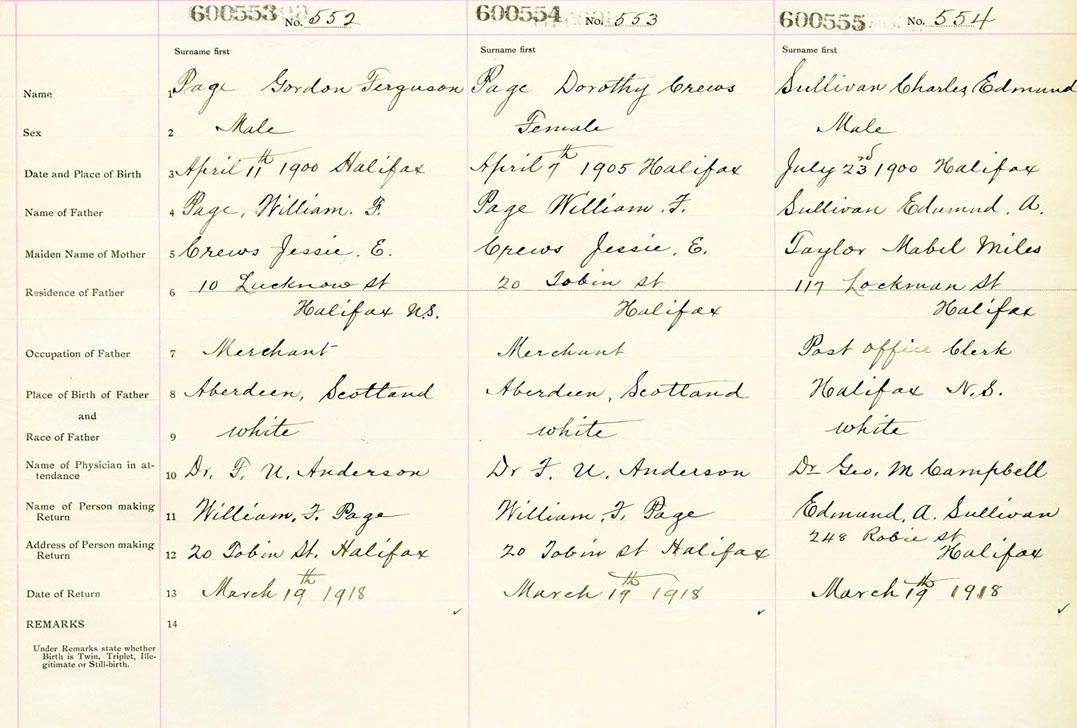 600553 No. 552 600554 No. 553 600555 No. 554
Surname first Surname first Surname first
Name 1 Page Gordon Ferguson Page Dorothy Crews Sullivan Charles Edmund
Sex 2 Male Female Male
Date and Place of Birth 3 April 11th 1900 Halifax April 7th 1905 Halifax July 23rd 1900 Halifax
Name of Father 4 Page, William. F. Page William. F. Sullivan Edmund. A.
Maiden Name of Mother 5 Crews Jessie. E. Crews Jessie. E. Taylor Mabel Miles
Residence of Father 6 10 Lucknow St 20 Tobin St 117 Lockman St
Halifax N.S. Halifax Halifax
Occupation of Father 7 Merchant Merchant Post office Clerk
Place of Birth of Father 8 Aberdeen, Scotland Aberdeen, Scotland Halifax N.S.
and
Race of Father 9 white white white
Name of Physician in at-
tendance 10 Dr. F. U. Anderson Dr F. U. Anderson Dr Geo. M Campbell
Name of Person making
Return 11 William. F. Page William. F. Page Edmund. A. Sullivan
Address of Person making 248 Robie St
Return 12 20 Tobin St. Halifax 20 Tobin St Halifax Halifax
Date of Return 13 March 19th 1918 March 19th 1918 March 19th 1918
REMARKS 14
Under Remarks state whether
Birth is Twin, Triplet, Ille-
gitimate or Still-birth.